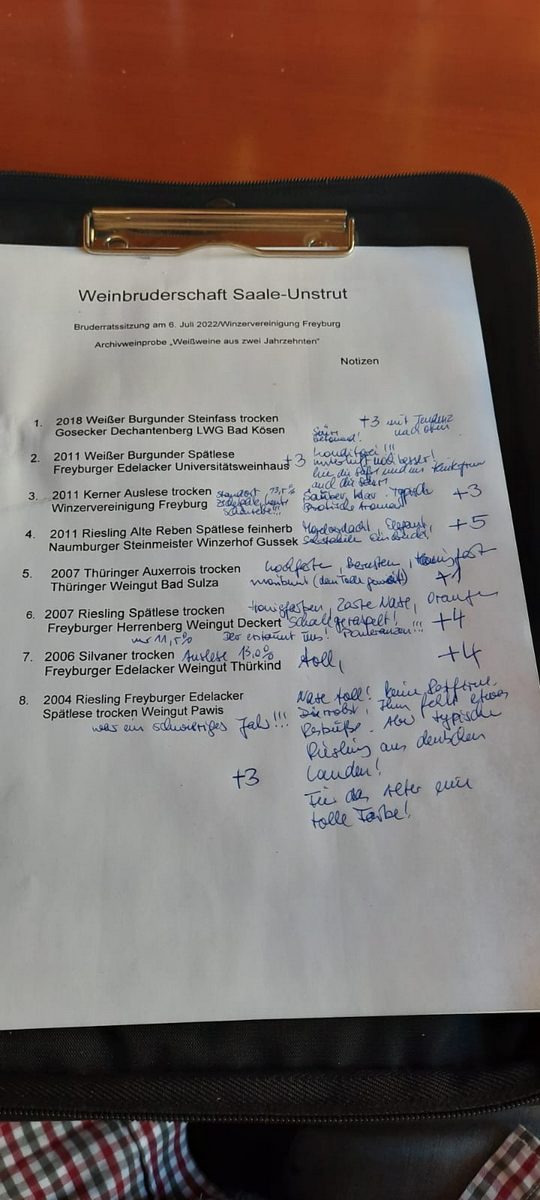 Weinbruderschaft Saale-Unstrut
Bruderratssitzung am 6. Juli 2022/Winzervereinigung Freyburg
Archivweinprobe „Weißweine aus zwei Jahrzehnten"
Notizen
1. 2018 Weißer Burgunder Steinfass trocken
Gosecker Dechantenberg LWG Bad Kösen
Säure betonend!
+3 mit Tendenz nach oben
2. 2011 Weißer Burgunder Spätlese
Freyburger Edelacker Universitätsweinhaus +3
Konditorei!!!
noch besser!
3. 2011 Kerner Auslese trocken
Winzervereinigung Freyburg
Standort 13,5%
Sauber, klar. Typische
+3
4. 2011 Riesling Alte Reben Spätlese feinherb
Naumburger Steinmeister Winzerhof Gussek
Elegant,
+5
5. 2007 Thüringer Auxerrois trocken
Thüringer Weingut Bad Sulza
hochfeste, Bernstein, Honigfest
moribund (dem Tode geweiht)
6. 2007 Riesling Spätlese trocken
Freyburger Herrenberg Weingut Deckert
Honigfarben, zarte Nase, Orangen
+4
nur 11,5%
Der erstaunt uns! Pomeranzen!!!
7. 2006 Silvaner trocken Auslese 13,0%
Freyburger Edelacker Weingut Thürkind
toll,
+4
8. 2004 Riesling Freyburger Edelacker
Spätlese trocken Weingut Pawis
war ein schwieriges Jahr!!!
+3
Nase toll! Keine
Ihm fehlt etwas
Restsüße. Aber typische
Riesling aus deutschen
Landen!
Für das Alter eine
tolle Farbe!